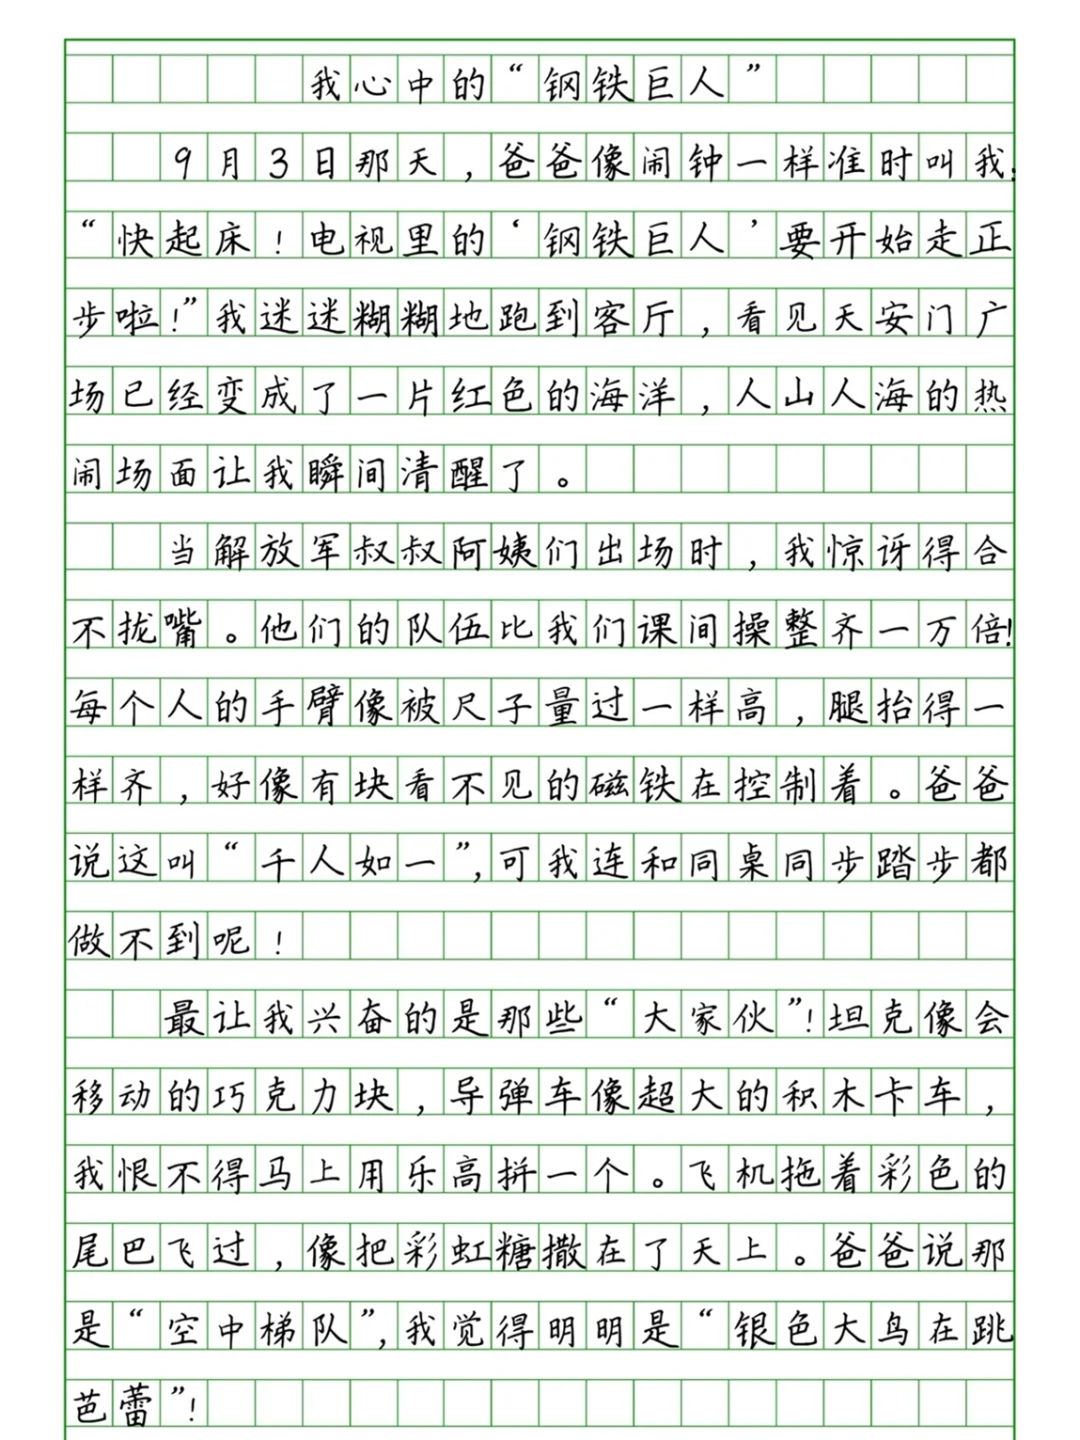 我心中的“钢铁巨人”
9月3日那天，爸爸像闹钟一样准时叫我：
“快起床！电视里的‘钢铁巨人’要开始走正
步啦！”我迷迷糊糊地跑到客厅，看见天安门广
场已经变成了一片红色的海洋，人山人海的热
闹场面让我瞬间清醒了。
当解放军叔叔阿姨们出场时，我惊讶得合
不拢嘴。他们的队伍比我们课间操整齐一万倍！
每个人的手臂像被尺子量过一样高，腿抬得一
样齐，好像有块看不见的磁铁在控制着。爸爸
说这叫“千人如一”，可我连和同桌同步踏步都
做不到呢！
最让我兴奋的是那些“大家伙”！坦克像会
移动的巧克力块，导弹车像超大的积木卡车，
我恨不得马上用乐高拼一个。飞机拖着彩色的
尾巴飞过，像把彩虹糖撒在了天上。爸爸说那
是“空中梯队”，我觉得明明是“银色大鸟在跳
芭蕾”！